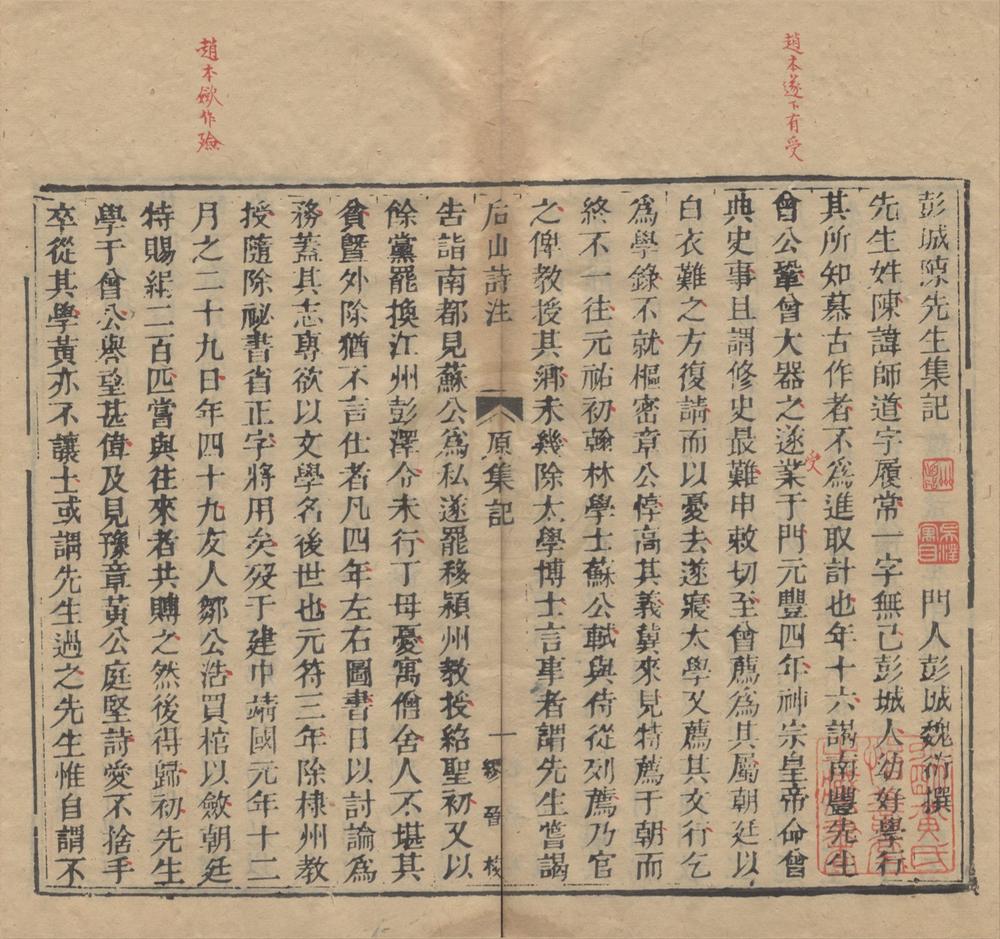 趙本遂下有受
趙本斂作殮
彭城陳先生集記
門人彭城魏衍撰
先生姓陳諱師道字履常一字無己彭城人幼好學行
其所知慕古作者不爲進取計也年十六謁南豐先生
曾公鞏曾大器之遂業于門元豐四年神宗皇帝命曾
受
典史事且謂修史最難申敕切至曾薦爲其屬朝廷以
白衣難之方復請而以憂去遂寢太學又薦其文行乞
爲學錄不就樞密章公惇高其義冀來見特薦于朝而
終不一往元祐初翰林學士蘇公軾與侍從列薦乃官
之俾教授其鄉未幾除太學博士言事者謂先生嘗謁
后山詩注
原集記
一
告詣南都見蘇公爲私遂罷移潁州教授紹聖初又以
餘黨罷換江州彭澤令未行丁母憂寓僧舍人不堪其
貧曁外除猶不言仕者凡四年左右圖書日以討論爲
務蓋其志專欲以文學名後世也元符三年除棣州教
授隨除祕書省正字將用矣歿于建中靖國元年十二
月之二十九日年四十九友人鄒公浩買棺以斂朝廷
特賜絹二百匹嘗與往來者共賻之然後得歸初先生
學于曾公譽望甚偉及見豫章黃公庭堅詩愛不捨手
卒從其學黃亦不讓士或謂先生過之先生惟自謂不